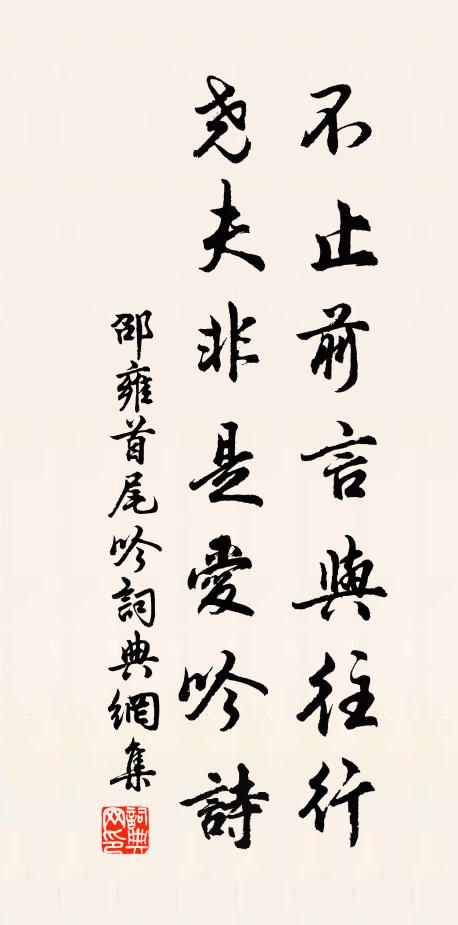 不止前言與往行
堯夫非是愛吟詩
邵雍首尾吟詞典網集
詞典網印